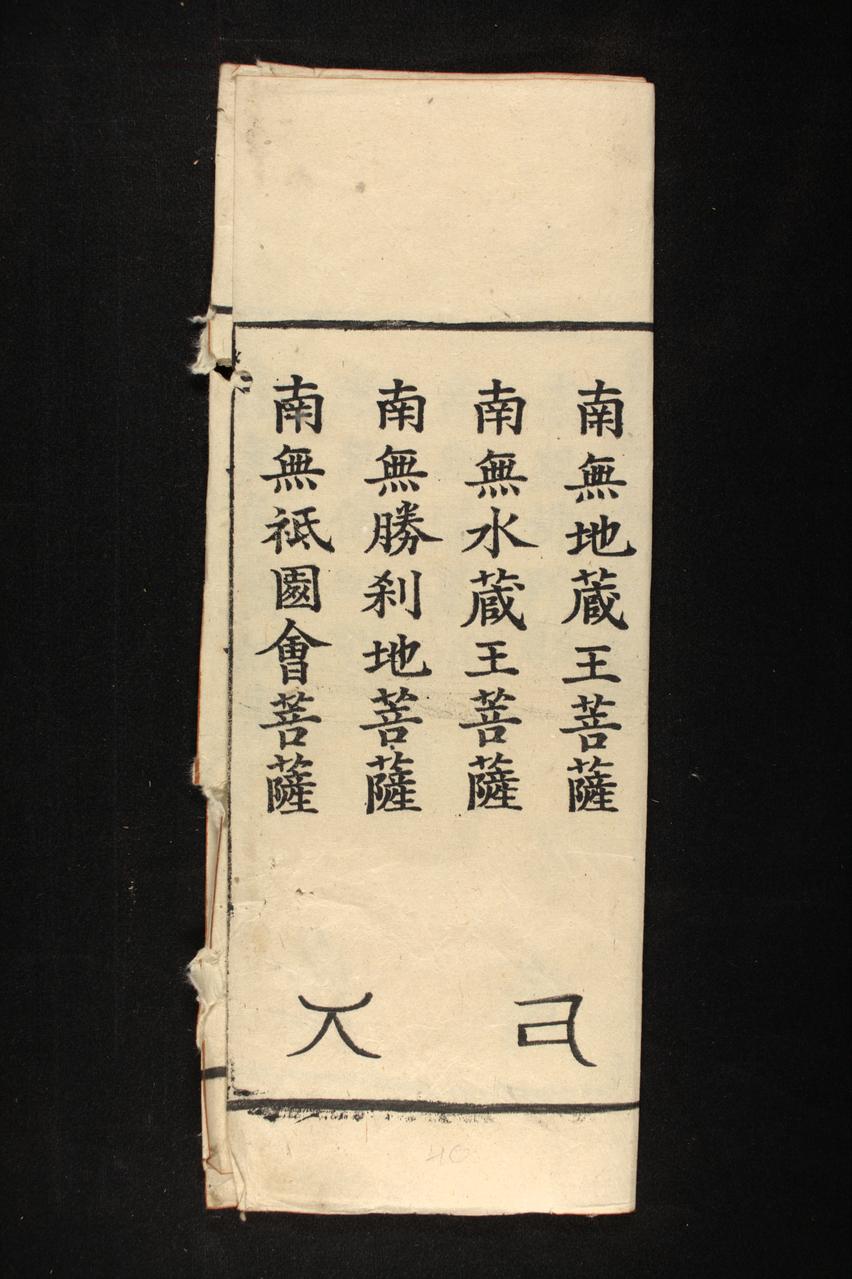 南無地蔵王菩薩
南無水蔵王菩薩
南無勝刹地菩薩
南無祇園會菩薩
40